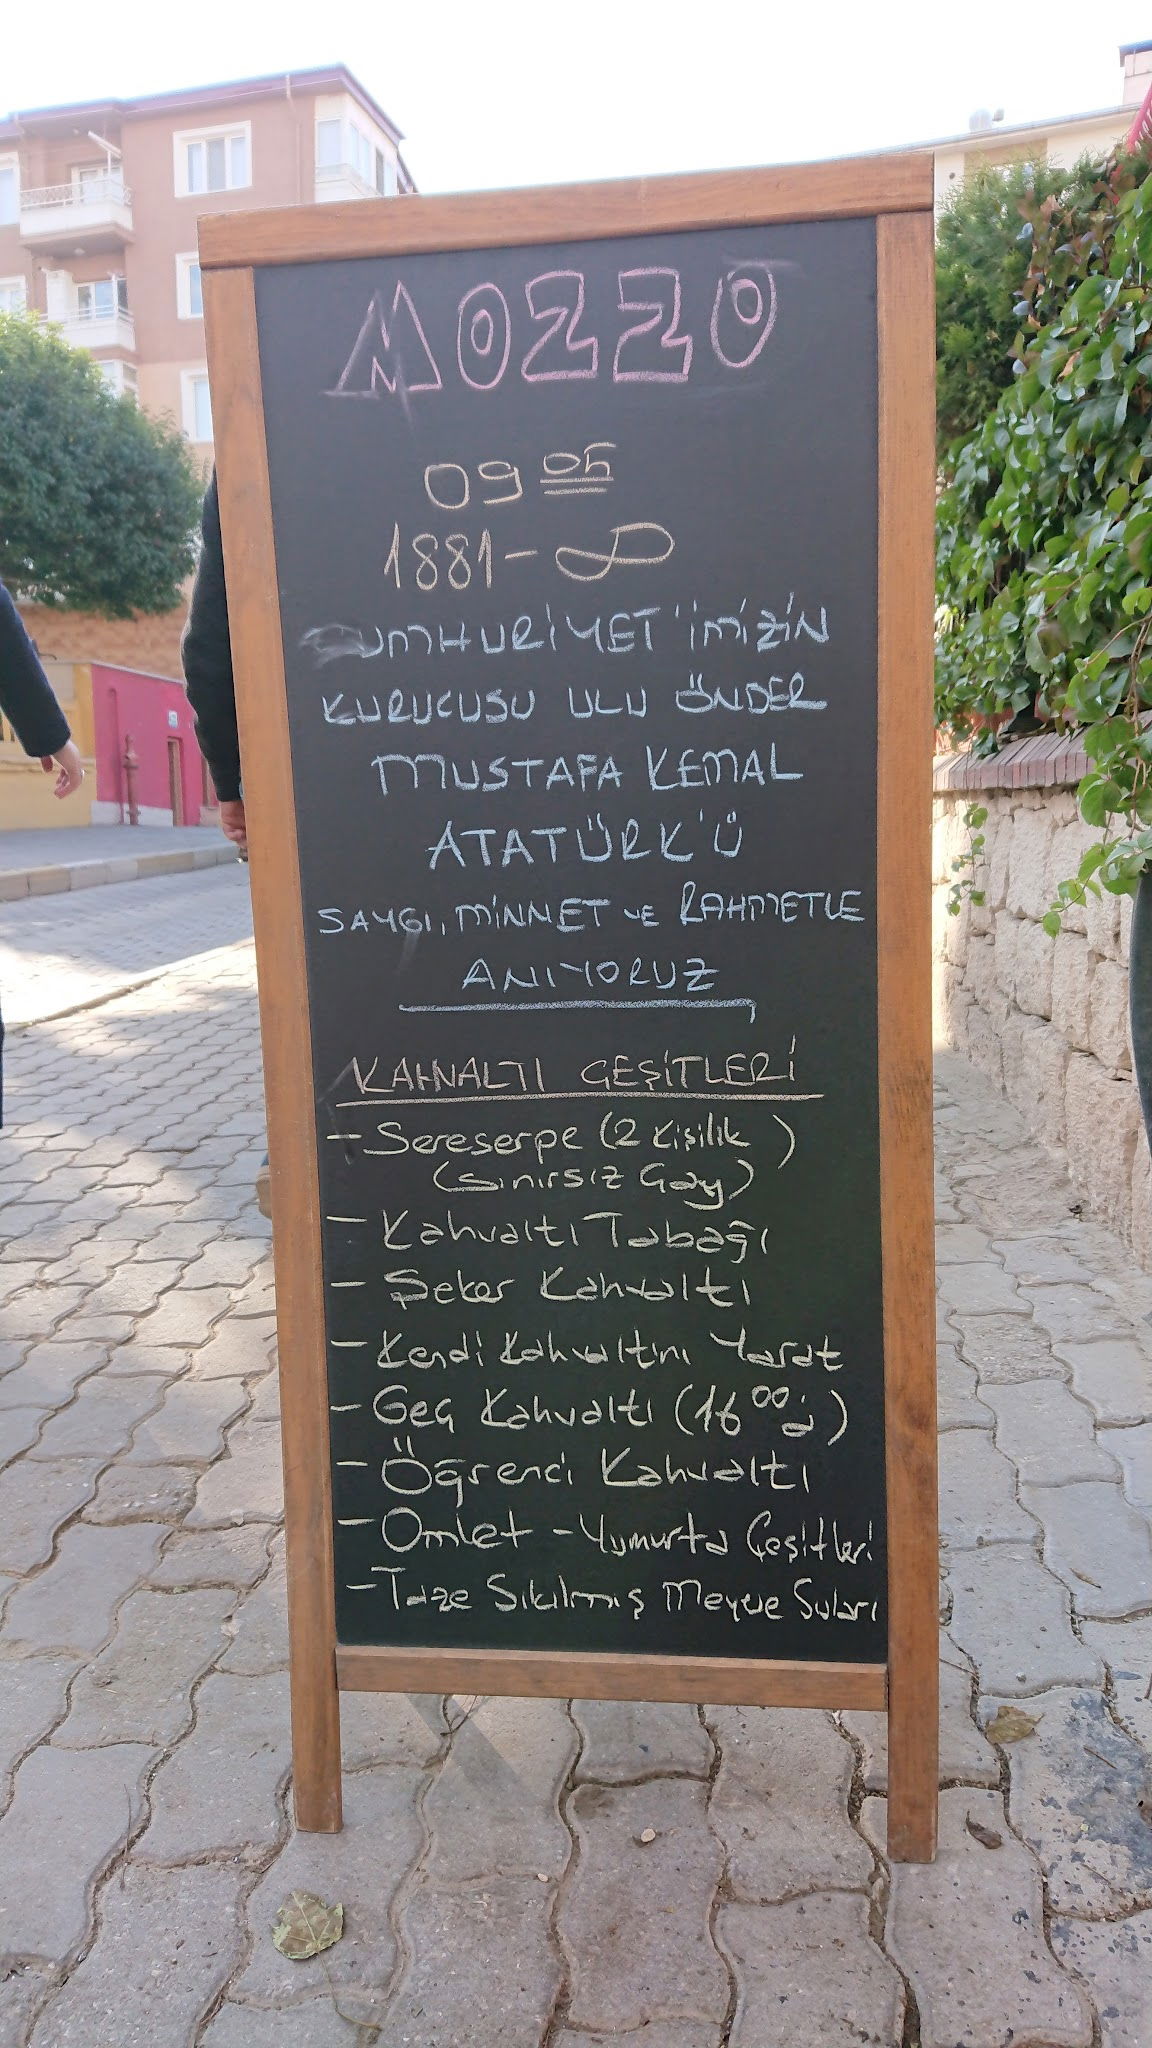 MOZZO
09 05
1881-∞
CUMHURİYET'İMİZİN
KURUCUSU ULU ÖNDER
MUSTAFA KEMAL
ATATÜRK'Ü
SAYGI, MİNNET VE RAHMETLE
ANIYORUZ
KAHVALTI ÇEŞİTLERİ
- Sereserpe (2 Kişilik)
(Sınırsız Çay)
- Kahvaltı Tabağı
- Şeker Kahvaltı
- Kendi Kahvaltını Yarat
- Geç Kahvaltı (16 00 'a)
- Öğrenci Kahvaltı
- Omlet - Yumurta Çeşitleri
- Taze Sıkılmış Meyve Suları